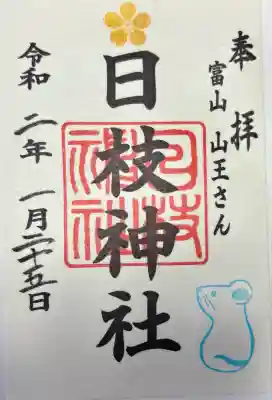 奉拝
富山 山王さん
日枝神社
日枝神社
令和二年 一月二十五日